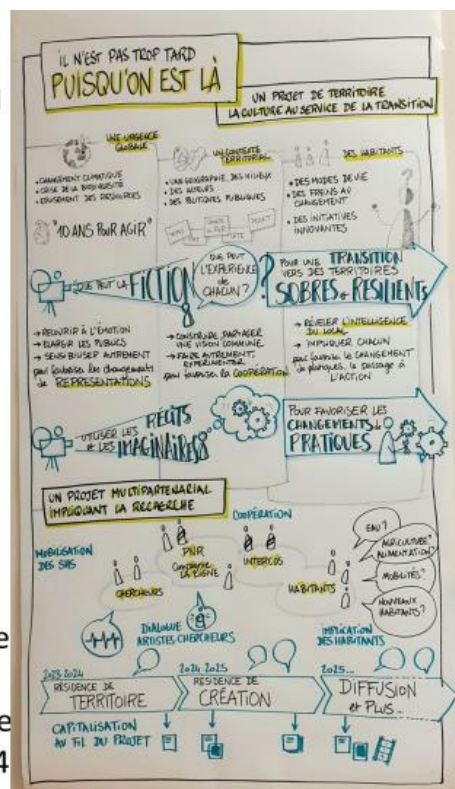 IL N'EST PAS TROP TARD
PUISQU'ON EST LÀ
UN PROJET DE TERRITOIRE
LA CULTURE AU SERVICE DE LA TRANSITION
UNE URGENCE
GLOBALE
• CHANGEMENT CLIMATIQUE
• CRISE DE LA BIODIVERSITÉ
• EPUISEMENT DES RESSOURCES
"10 ANS POUR AGIR"
UN CONTEXTE
TERRITORIAL
• UNE GÉOGRAPHIE, DES MILIEUX
• DES ACTEURS
• DES POLITIQUES PUBLIQUES
DES HABITANTS
• DES MODES DE VIE
• DES FREINS AU
CHANGEMENT
• DES INITIATIVES
INNOVANTES
?
QUE PEUT LA FICTION
QUE PEUT
L'EXPÉRIENCE
DE
CHACUN ?
?
POUR UNE TRANSITION
VERS DES TERRITOIRES
SOBRES et RÉSILIENTS
→ RECOURIR À L'ÉMOTION
→ ELARGIR LES PUBLICS
→ SENSIBILISER AUTREMENT
pour favoriser les changements
de REPRÉSENTATIONS
→ CONSTRUIRE, PARTAGER
UNE VISION COMMUNE
→ FAIRE AUTREMENT,
EXPÉRIMENTER
pour favoriser la COOPÉRATION
→ RÉVÉLER L'INTELLIGENCE
DU LOCAL
→ IMPLIQUER CHACUN
pour favoriser le CHANGEMENT
de pratiques, le passage à
L'ACTION
UTILISER LES RÉCITS
et LES IMAGINAIRES
POUR FAVORISER LES
CHANGEMENTS de
PRATIQUES
UN PROJET MULTIPARTENARIAL
IMPLIQUANT LA RECHERCHE
MOBILISATION
DES SHS
CHERCHEURS
PNR
COMPAGNIE
LA LIGNE
COOPÉRATION
INTERCOS
HABITANTS
EAU ?
AGRICULTURE ?
ALIMENTATION ?
MOBILITÉS ?
NOUVEAUX
HABITANTS ?
DIALOGUE
ARTISTES CHERCHEURS
IMPLICATION
DES HABITANTS
2023-2024
RÉSIDENCE DE
TERRITOIRE
2024 2025
RESIDENCE DE
CRÉATION
2025...
DIFFUSION
et PLUS...
CAPITALISATION
AU FIL DU PROJET
e
e
4